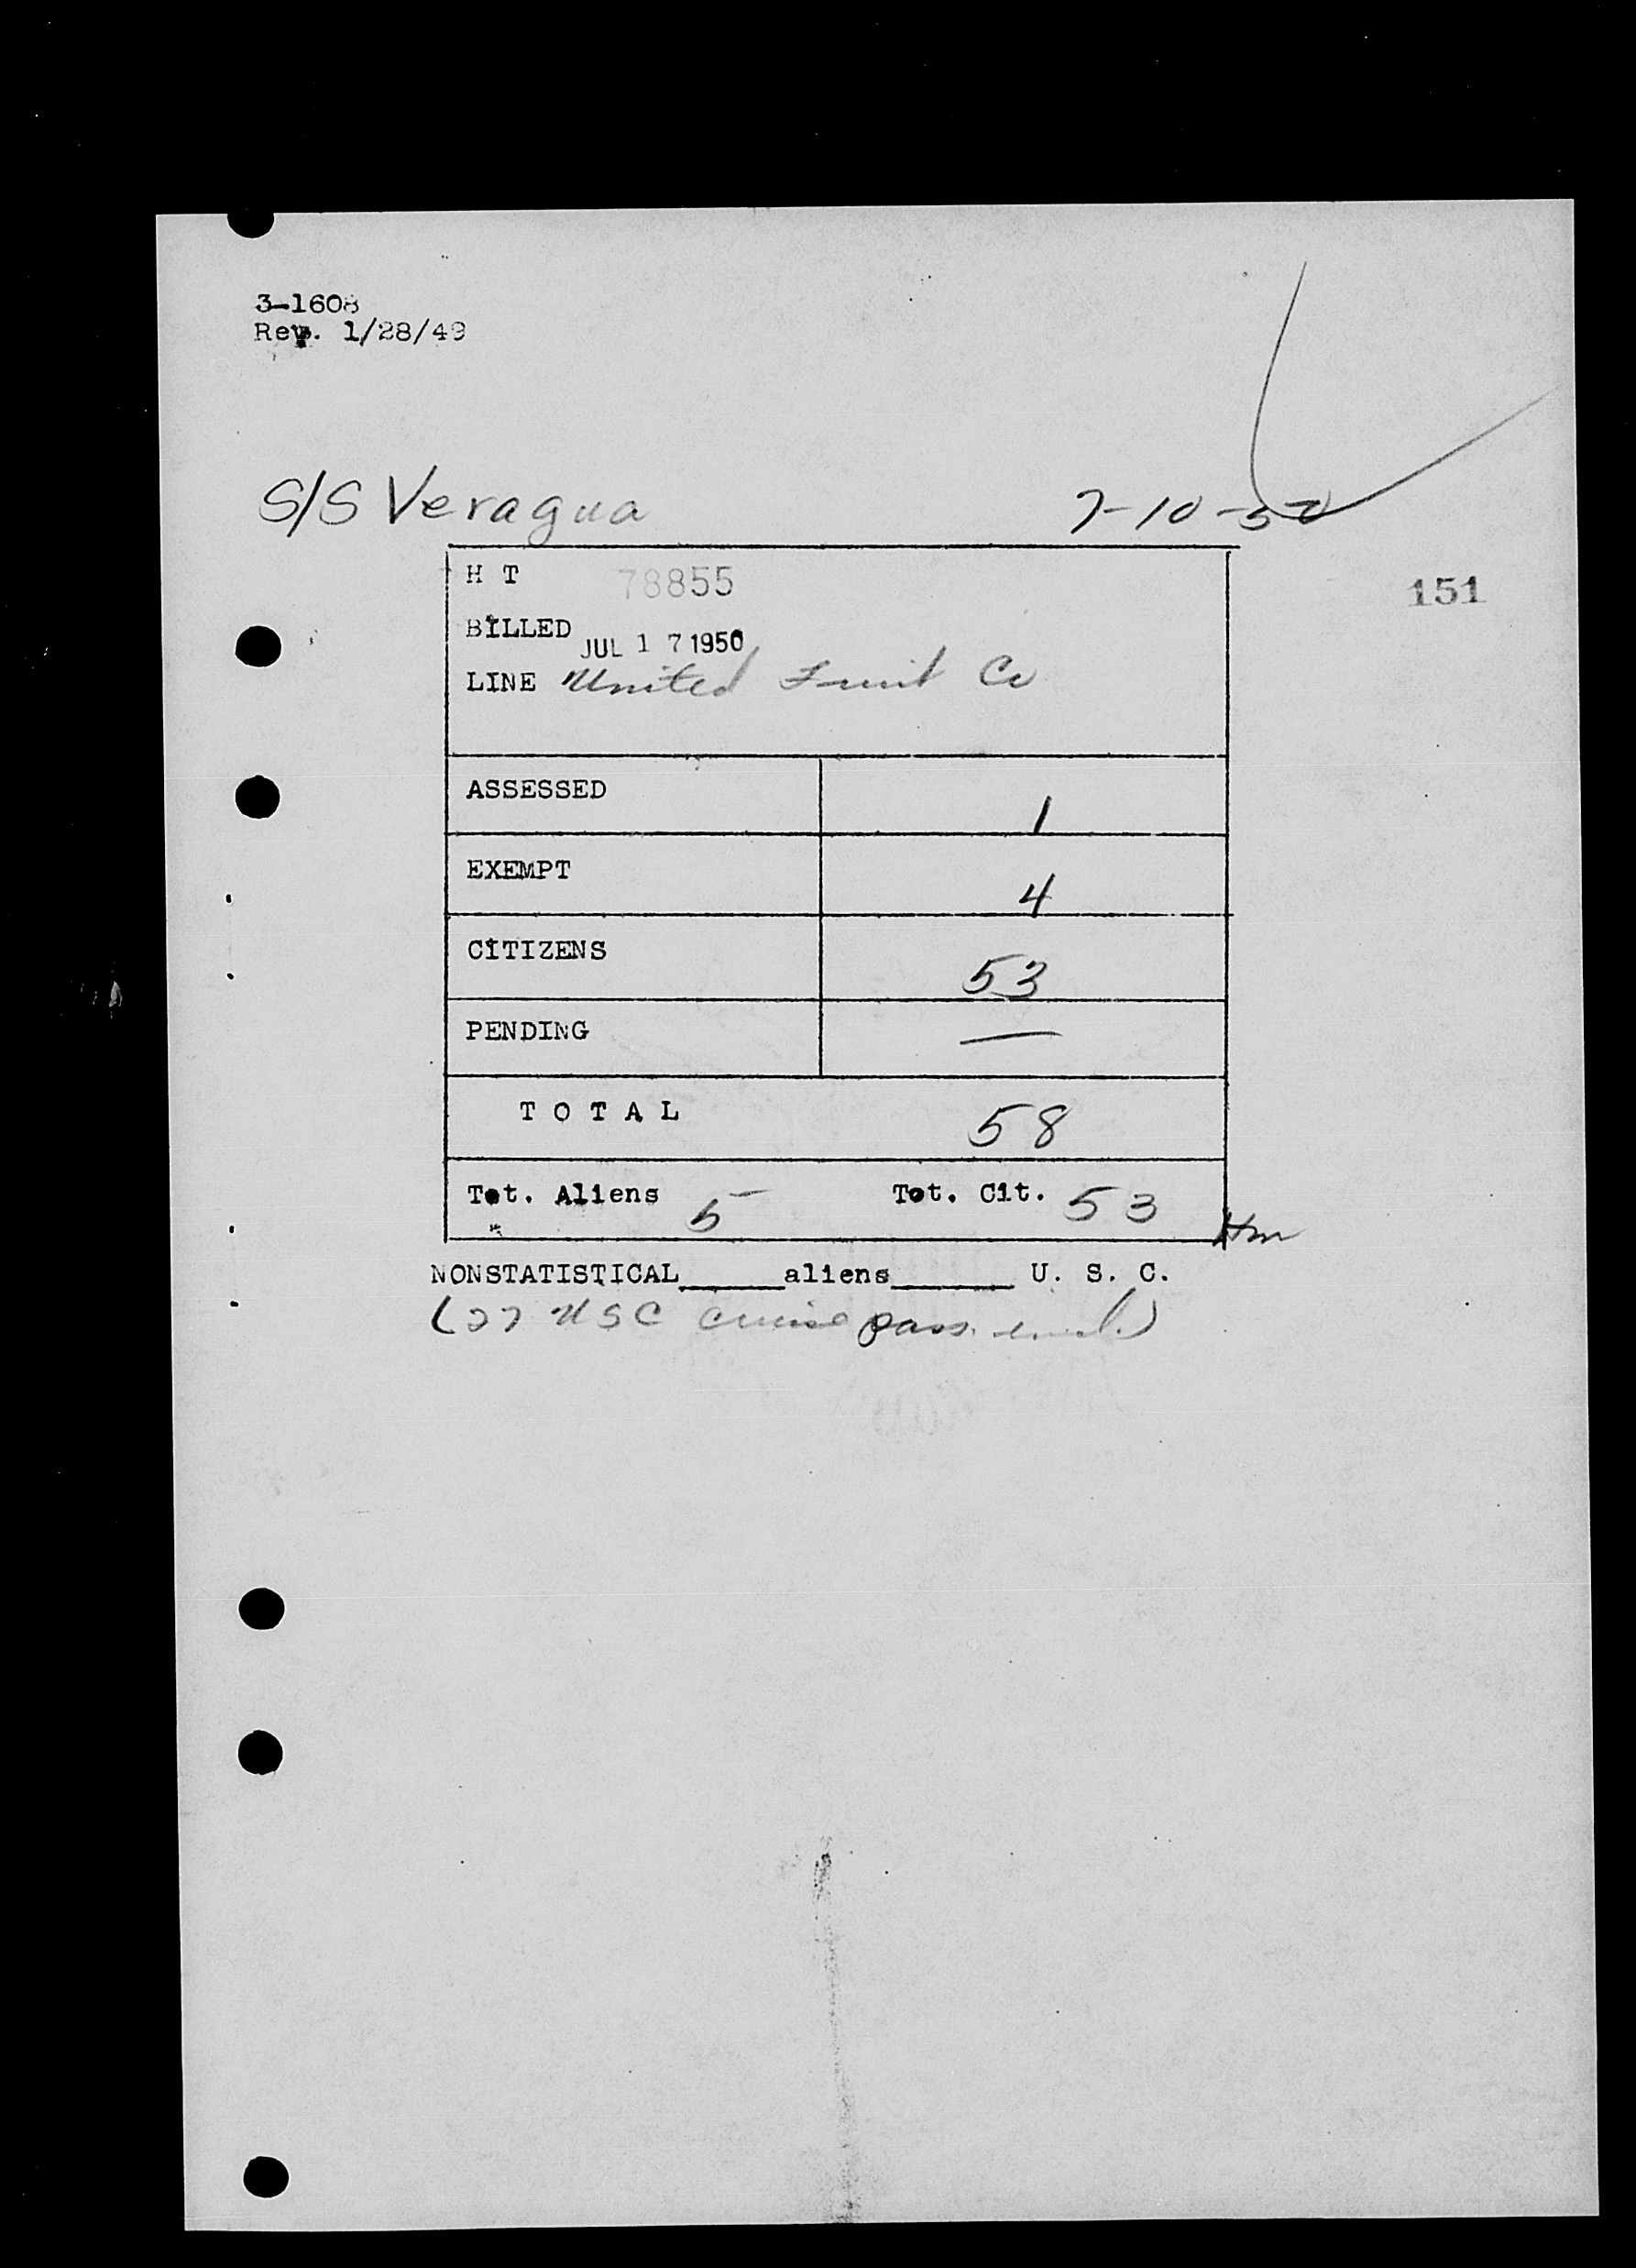 3-1608
Rev. 1/28/49
S/S Veragua 7-10-50
H T 78855
151
BILLED JUL 17 1950
LINE United Fruit Co
ASSESSED 1
EXEMPT 4
CITIZENS 53
PENDING —
T O T A L 58
Tot. Aliens 5 Tot. Cit. 53
Hm
NONSTATISTICAL______aliens_______ U. S. C.
(27 USC cruise pass. incl.)